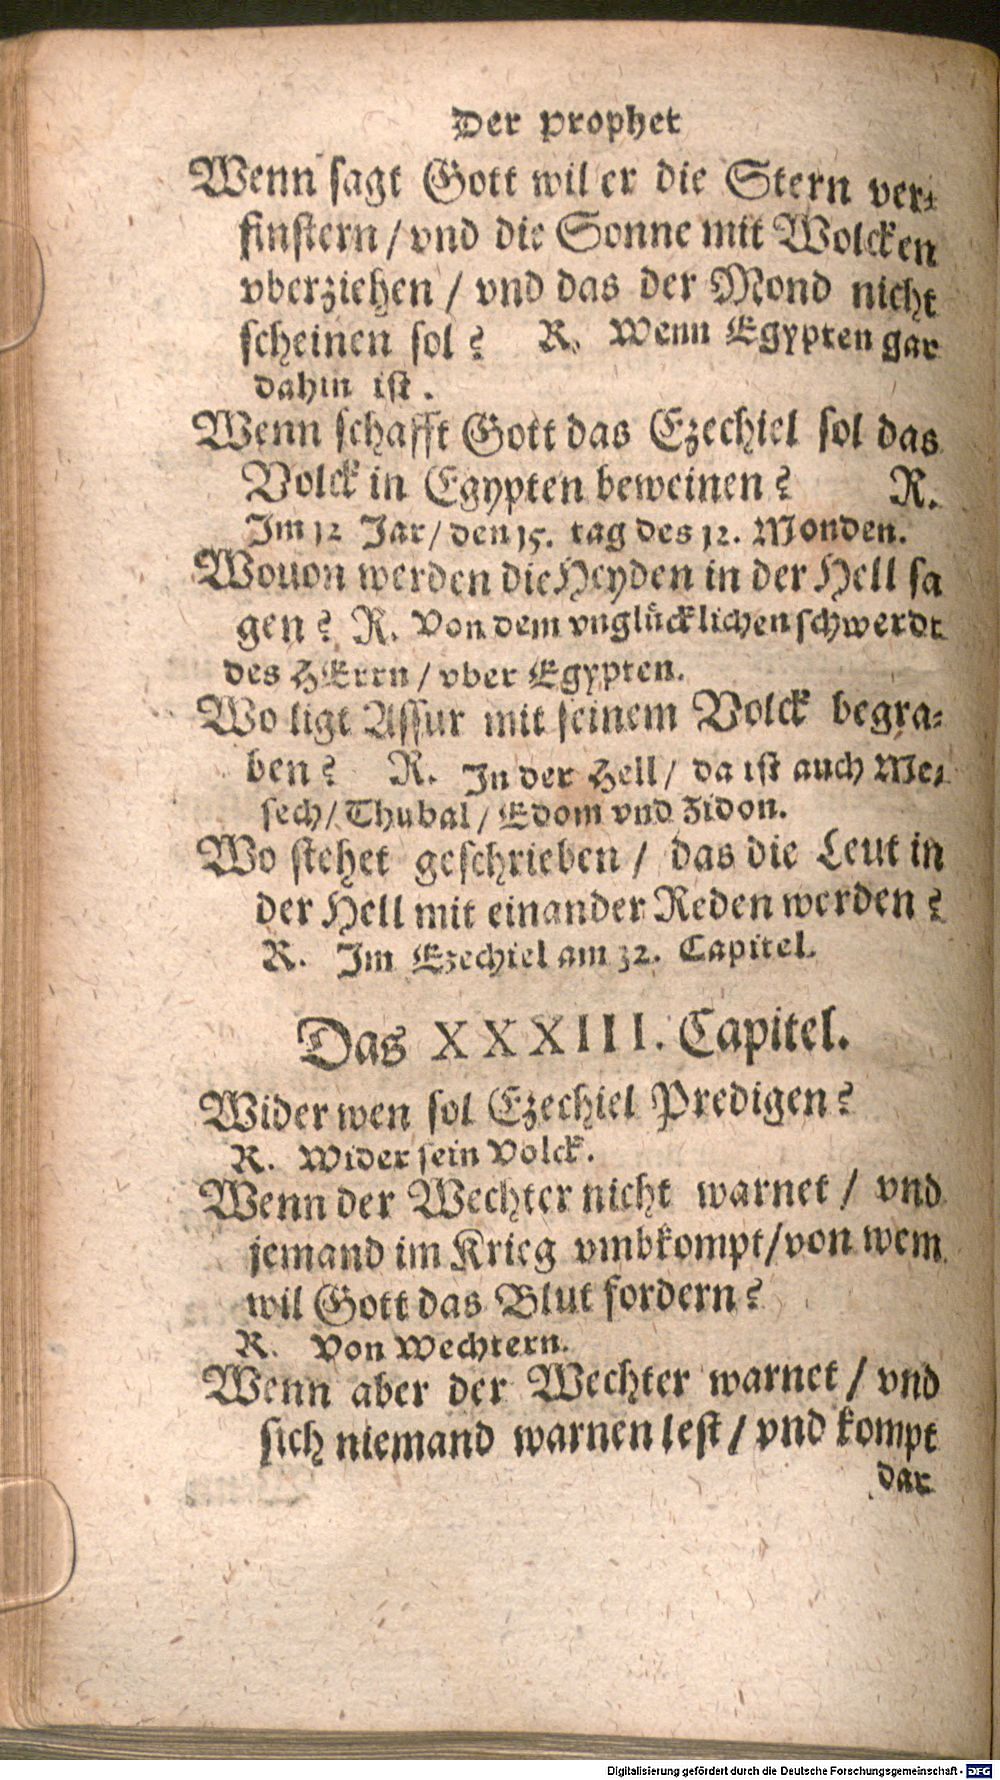 Der prophet
Wenn sagt Gott wil er die Stern ver-
finstern / vnd die Sonne mit Wolcken
vberziehen / vnd das der Mond nicht
scheinen sol? R. Wenn Egypten gar
dahin ist.
Wenn schafft Gott das Ezechiel sol das
Volck in Egypten beweinen? R.
Im 12 Jar / den 15. tag des 12. Monden.
Wouon werden die Heyden in der Hell sa
gen? R. Von dem vnglücklichen schwerdt
des HErrn / vber Egypten.
Wo ligt Assur mit seinem Volck begra-
ben? R. In der Hell / da ist auch Me-
sech / Thubal / Edom vnd Zidon.
Wo stehet geschrieben / das die Leut in
der Hell mit einander Reden werden?
R. Im Ezechiel am 32. Capitel.
Das XXXIII. Capitel.
Wider wen sol Ezechiel Predigen?
R. Wider sein Volck.
Wenn der Wechter nicht warnet / vnd
jemand im Krieg vmbkompt / von wem
wil Gott das Blut fordern?
R. Von Wechtern.
Wenn aber der Wechter warnet / vnd
sich niemand warnen lest / vnd kompt
dar
Digitalisierung gefördert durch die Deutsche Forschungsgemeinschaft - DFG